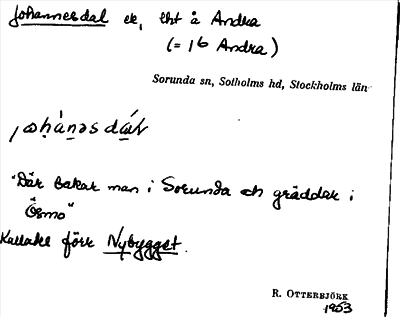 Johannesdal ek, tht å Andra
(= 16 Andra)
Sorunda sn, Sotholms hd, Stockholms län
"Där bakar man i Sorunda och gräddar i
Ösmo"
Kallades förr Nybygget.
R. OTTERBJÖRK
1953